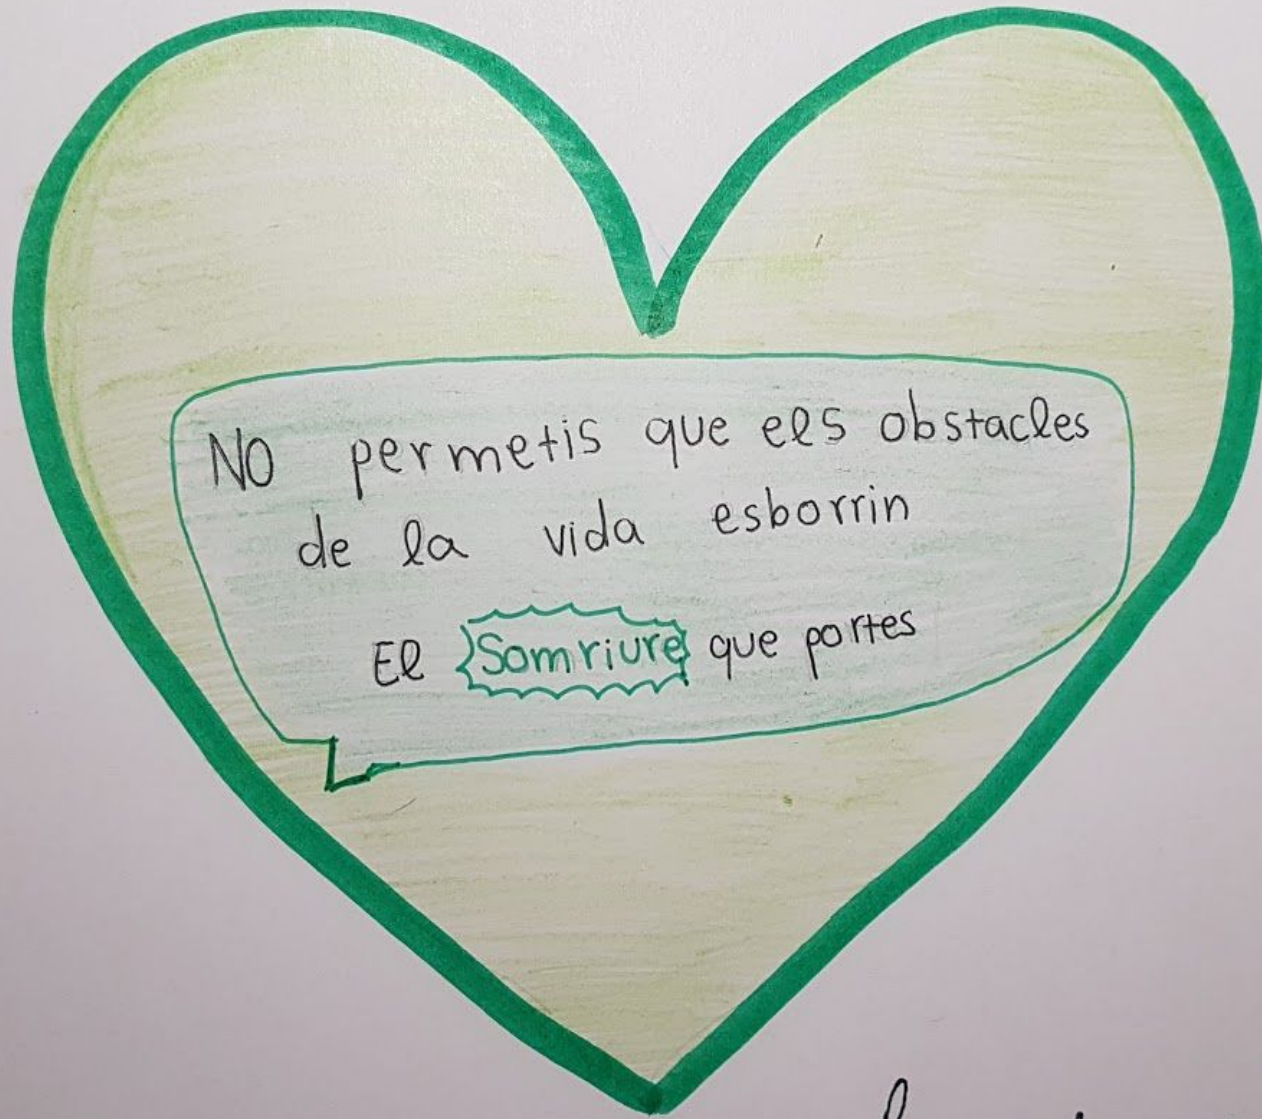 No permetis que els obstacles
de la vida esborrin
El Somriure que portes